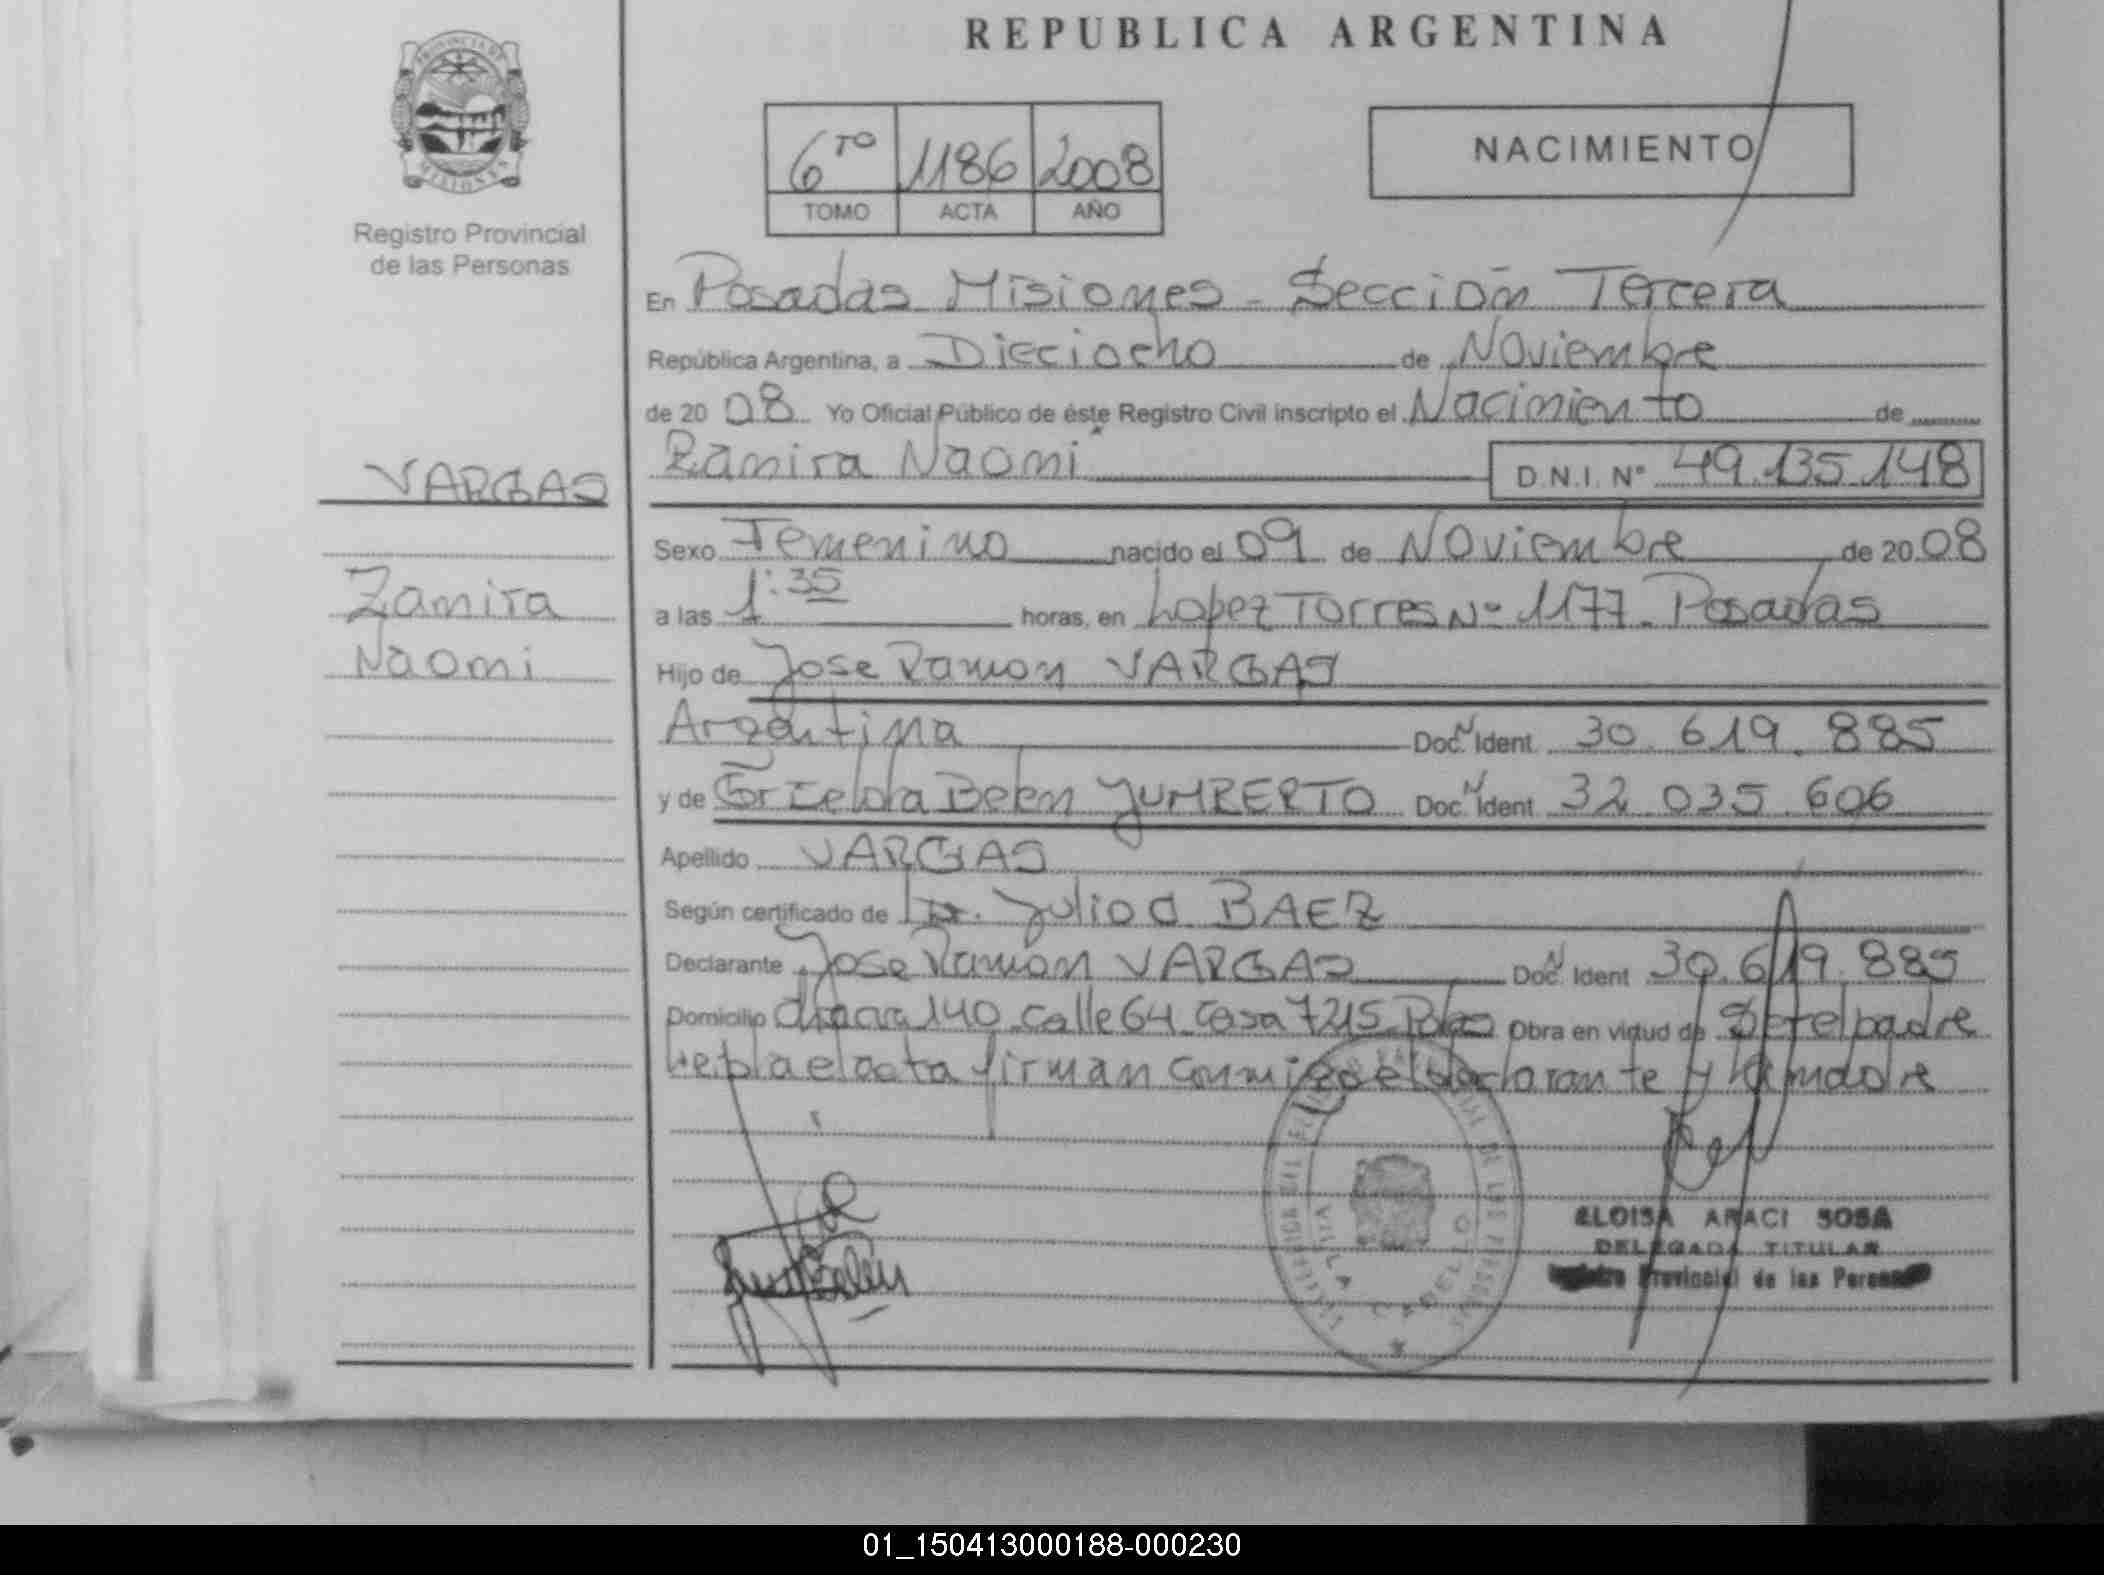 REPUBLICA ARGENTINA
6TO 1186 2008
TOMO ACTA AÑO
NACIMIENTO
PROVINCIA DE MISIONES
Registro Provincial
de las Personas
VARGAS
Zamira
Naomi
En Posadas Misiones - Sección Tercera
República Argentina, a Dieciocho de Noviembre
de 20 08 Yo Oficial Público de éste Registro Civil inscripto el Nacimiento de
Zamira Naomi D.N.I. Nº 49.135.148
Sexo Femenino nacido el 09 de Noviembre de 20 08
a las 1:35 horas, en Lopez Torres Nº 1177 - Posadas
Hijo de Jose Ramon VARGAS
Argentina Doc. Ident 30.619.885
y de Griselda Belen YUMBERTO Doc. Ident 32 035 606
Apellido VARGAS
Según certificado de Dr. Julio C BAEZ
Declarante Jose Ramon VARGAS Doc. Ident 30.619.885
Domicilio chacra 140 calle 64 casa 7215 Pdas Obra en virtud de Ser el padre
Leida el acta firman conmigo el declarante y la madre
Belen
VILLA CABELLO
ELOISA ARACI SOSA
DELEGADA TITULAR
Provincial de las Personas
01_150413000188-000230